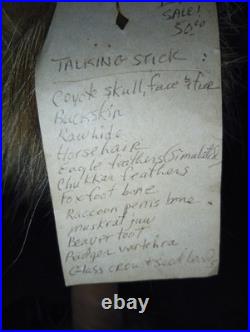 SALE!
50.00
TALKING STICK :
Coyote skull, face & fur
Buckskin
Rawhide
Horsehair
Eagle feathers (Simulated)
Chukkar feathers
fox foot bone
Raccoon penis bone
muskrat jaw
Beaver foot
Badger vertebra
Glass crow & seed beads